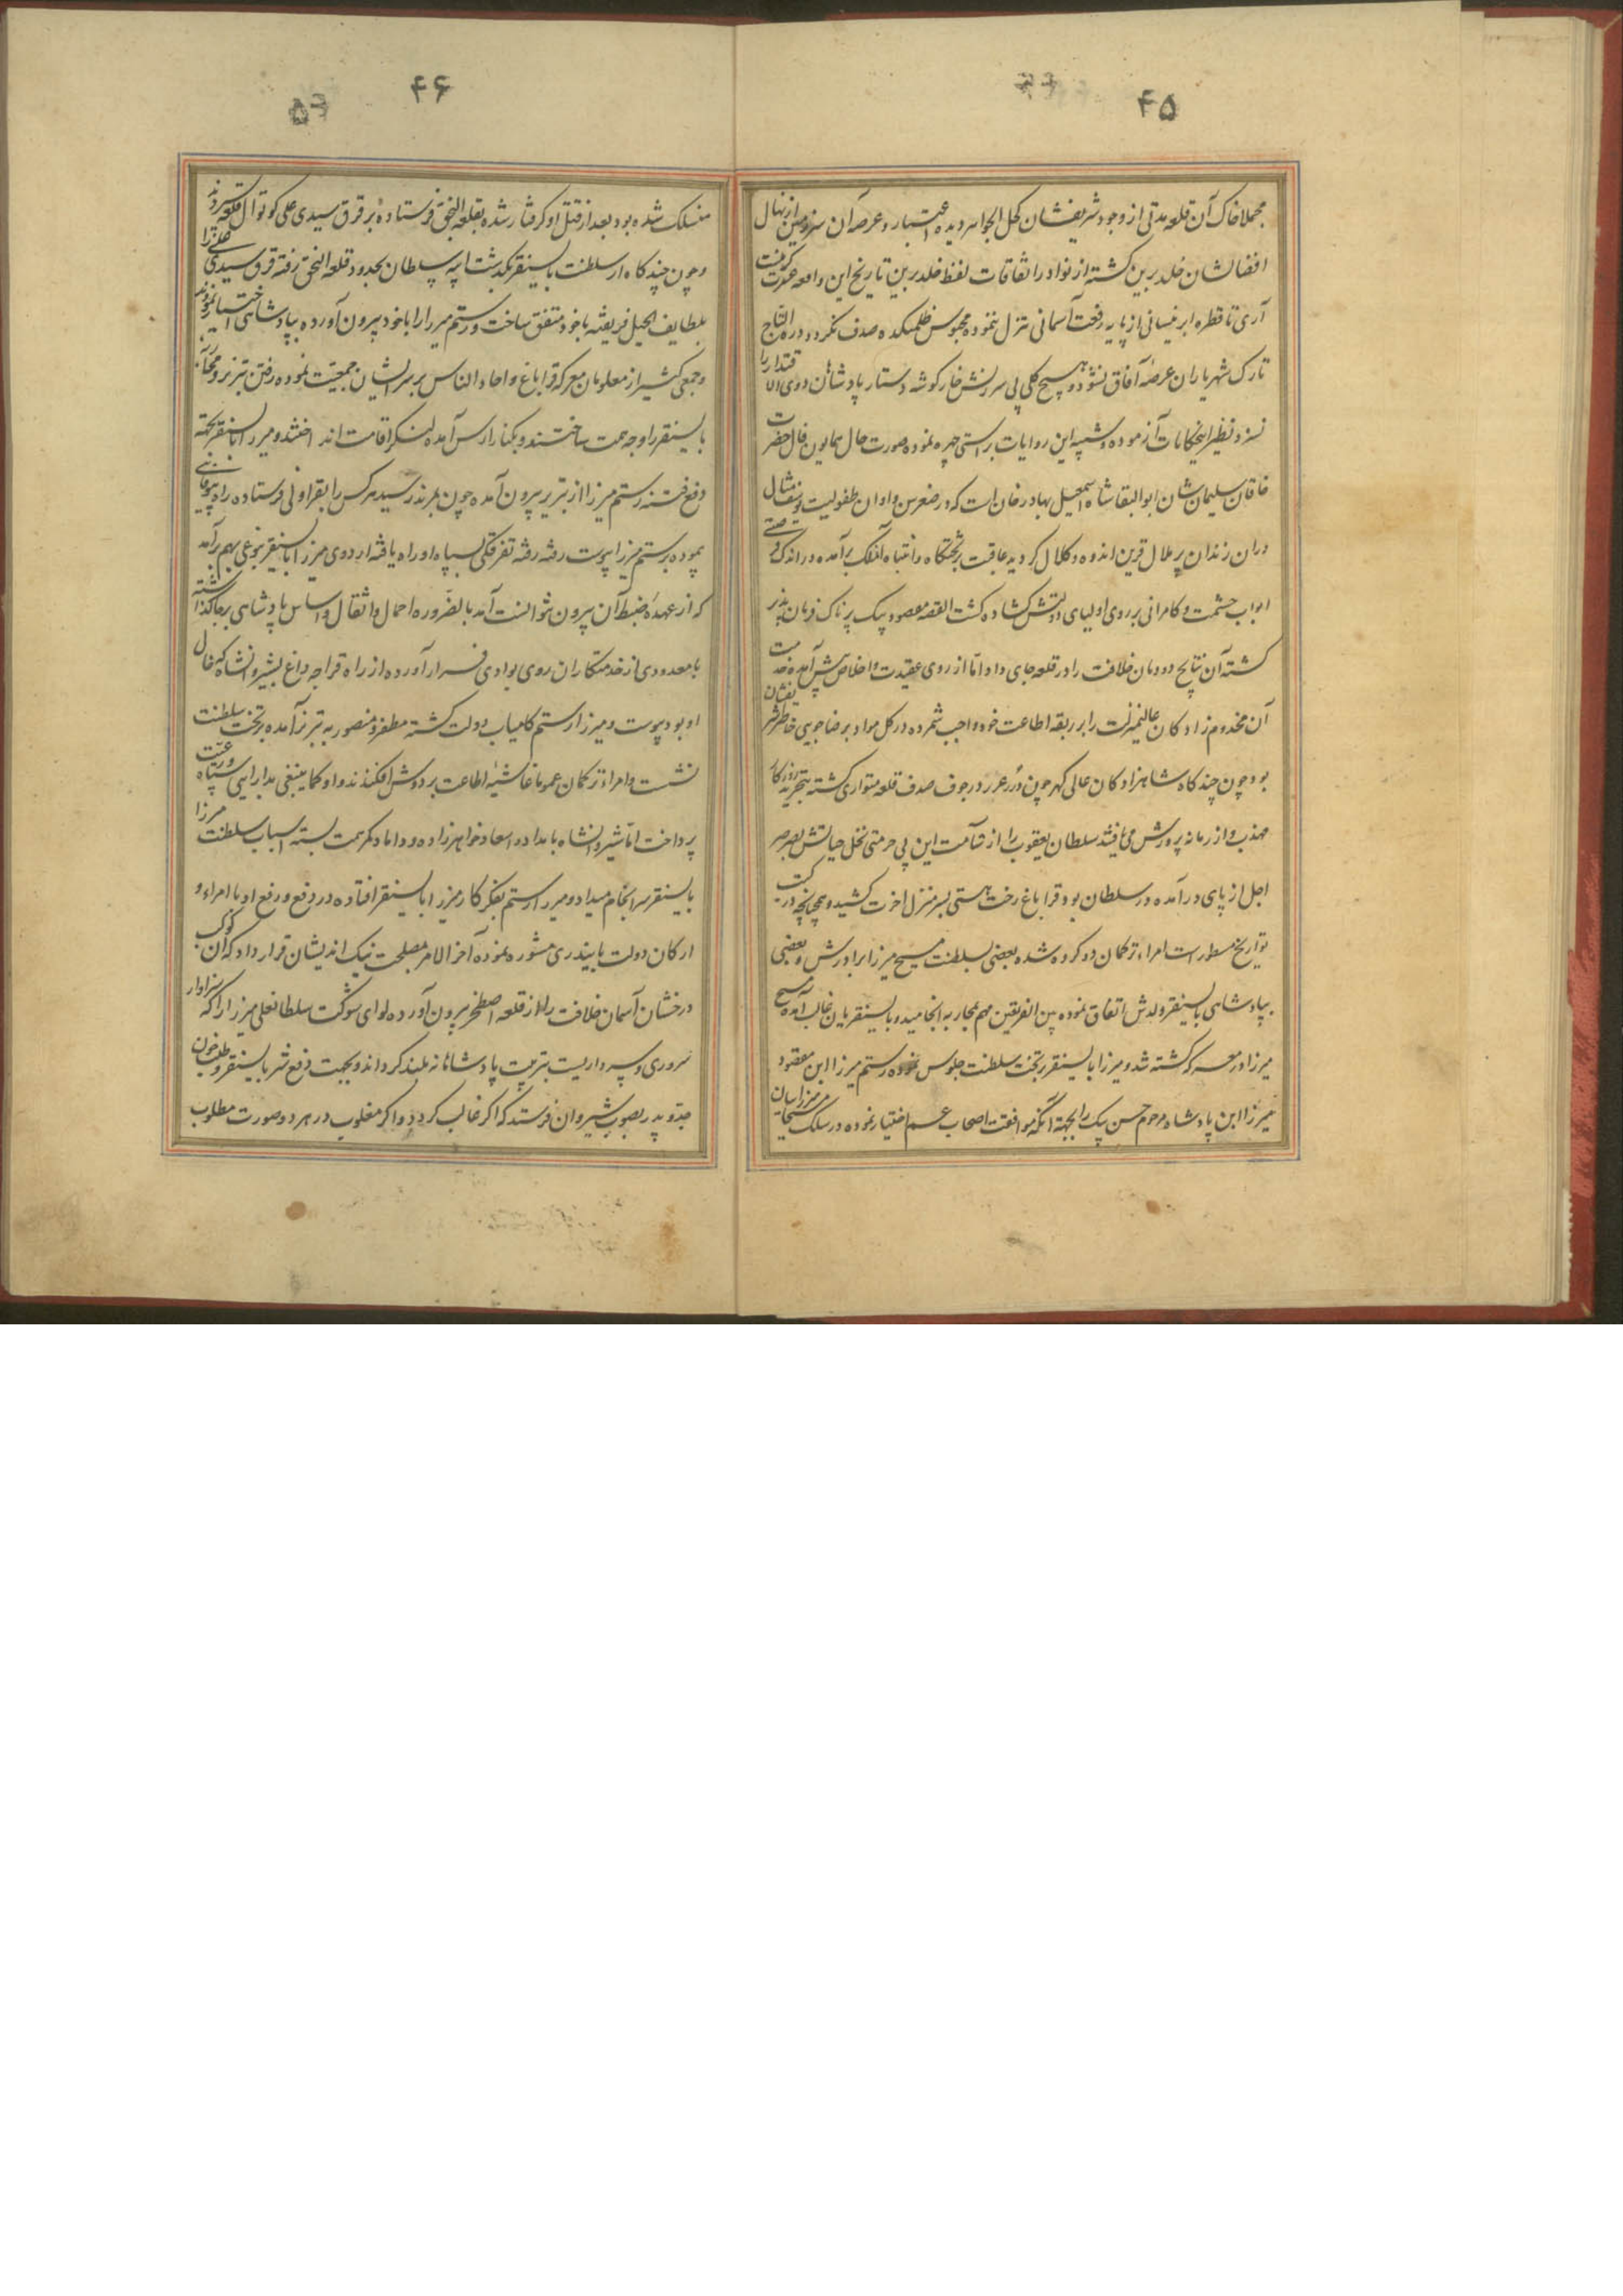 ۴۵
مجملا خاک آن قلعه مدتی از وجود شریفشان کحل الجواهر دیده اعتبار و عرصه آن سرزمین از نهال
افضالشان خلد برین کشته از نوادر اتفاقات لفظ خلد برین تاریخ این واقعه
آری تا قطره ابر نیسانی از پایه رفعت آسمانی تنزل ننموده محبوس ظلمتکده صدف نکردد درة التاج
تارک شهریاران عرصه آفاق نشود و هیچ کلی بی سرزنش خار کوشه دستار پادشاهان ذوی الاقتدار را
نسزد نظیر اینحکایات آزموده و شبیه این روایات براستی چهره نموده صورت حال همایون فال حضرت
خاقان سلیمان شان ابوالبقا شاه اسمعیل بهادر خان است که در صغر سن و اوان طفولیت
دران زندان پر ملال قرین اندوه و کلال کردیده عاقبت بر تختکاه و انتباه آفلک برآمده در اندک فرصتی
ابواب حشمت و کامرانی بر روی اولیای دولتش کشاده کشت القصه مقصود بیک پرناک فرمان پذیر
کشته آن نتایج دودمان خلافت را در قلعه جای داد اما از روی عقیدت و اخلاص پیش آمده خدمت
آن مخدوم زادکان عالیمنزلت را بر ربقه اطاعت خود واجب شمرده در کل مواد برضاجویی خاطر شریفشان
بود چون چند کاه شاهزادکان عالی کهر چون درر غرر در جوف صدف قلعه متواری کشته
مهذب و از زمانه پرورش می یافتند سلطان یعقوب را از شآمت این بی حرمتی نخل حیاتش بصرصر
اجل از پای درآمده در سلطان بود قراباغ رخت هستی بسر منزل اخرت کشید و چنانچه در کتب
تواریخ مسطور است امراء ترکمان دو کروه شده بعضی بسلطنت مسیح میرزا برادرش و بعضی
بپادشاهی بایسنقر ولدش اتفاق نموده بین الفریقین مهم بمحاربه انجامید و بایسنقریان غالب آمده مسیح
میرزا در معرکه کشته شد و میرزا بایسنقر بر تخت سلطنت جلوس نموده رستم میرزا ابن مقصود
میرزا ابن پادشاه مرحوم حسن بیک را بجهة آنکه موافقت اصحاب عم اختیار نموده در سلک
۴۶
منسلک شده بود بعد از قتل او کرفتار شده بقلعه النجق فرستاده بر قرق سیدی علی کوتوال قلعه سپردند
و چون چند کاه از سلطنت بایسنقر بکذشت ایبه سلطان بحدود قلعه النجق رفته قرق سیدی علی را
بلطایف الحیل فریفته با خود متفق ساخت و رستم میرزا را با خود بیرون آورده بپادشاهی اختیار نمودند
و جمعی کثیر از مغلوبان معرکه قراباغ و احاد الناس بر سر ایشان جمعیت نموده رفتن تبریز و محاربه
بایسنقر را وجه همت ساختند و بکنار ارس آمده لنکر اقامت انداختند و میرزا بایسنقر بجهة
دفع فتنه رستم میرزا از تبریز بیرون آمده چون بمرند رسید هرکس را بقراولی فرستاده راه بیوفائی
پیموده برستم میرزا پیوست رفته رفته تفرقکی بسپاه او راه یافته اردوی میرزا بایسنقر بنوعی بهم برآمد
که از عهده ضبط آن بیرون نتوانست آمد بالضروره احمال و اثقال و اساس پادشاهی بر جا کذاشته
با معدودی از خدمتکاران روی بوادی فرار آورده از راه قراجه داغ بشیروانشاه که خال
او بود پیوست و میرزا رستم کامیاب دولت کشته مظفر و منصور به تبریز آمده بر تخت سلطنت
نشست و امراء ترکمان عموما غاشیه اطاعت بر دوش افکندند و او کما ینبغی بدارایی سپاه و رعیت
پرداخت اما شیروانشاه بامداد و اسعاد خواهرزاده و داماد کمر همت بسته اسباب سلطنت میرزا
بایسنقر سرانجام میداد و میرزا رستم بفکر کار میرزا بایسنقر افتاده در دفع و رفع او با امراء و
ارکان دولت بایندری مشوره نموده آخر الامر مصلحت نیک اندیشان قرار داد که آن کوکب
درخشان آسمان خلافت را از قلعه اصطخر بیرون آورده لوای شوکت سلطانعلی میرزا را که سزاوار
سروری و سپه داریست بتربیت پادشاهانه بلند کرداند و بجهت دفع شر بایسنقر و طلب خون
جد و پدر بصوب شیروان فرستد که اکر غالب کردد و اکر مغلوب در هر دو صورت مطلوب